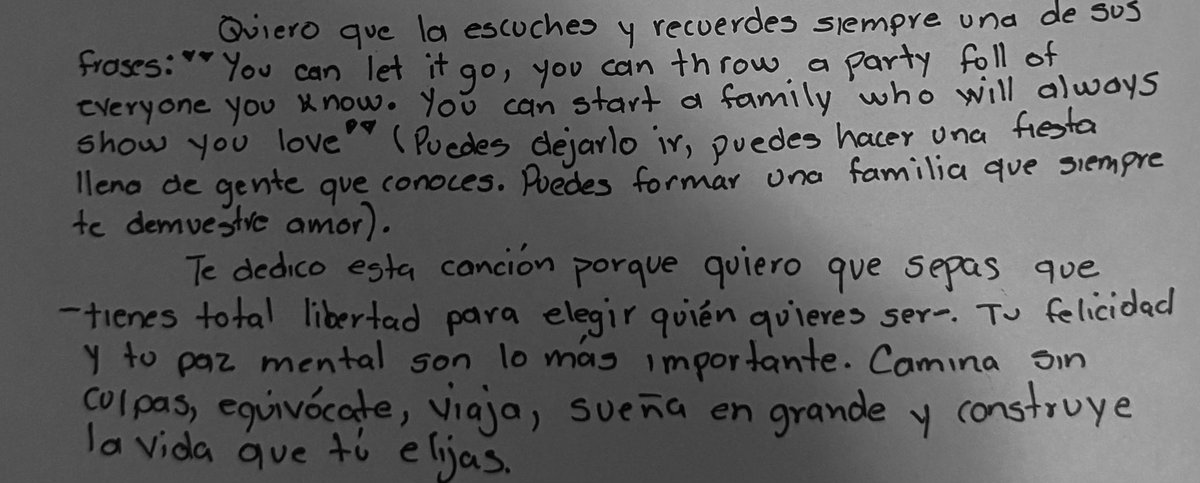 Quiero que la escuches y recuerdes siempre una de sus
frases: "" You can let it go, you can throw a party foll of
everyone you know. You can start a family who will always
show you love"" (Puedes dejarlo ir, puedes hacer una fiesta
llena de gente que conoces. Puedes formar una familia que siempre
te demuestre amor).
Te dedico esta canción porque quiero que sepas que
-tienes total libertad para elegir quién quieres ser-. Tu felicidad
y tu paz mental son lo más importante. Camina sin
culpas, equivócate, viaja, sueña en grande y construye
la vida que tú elijas.